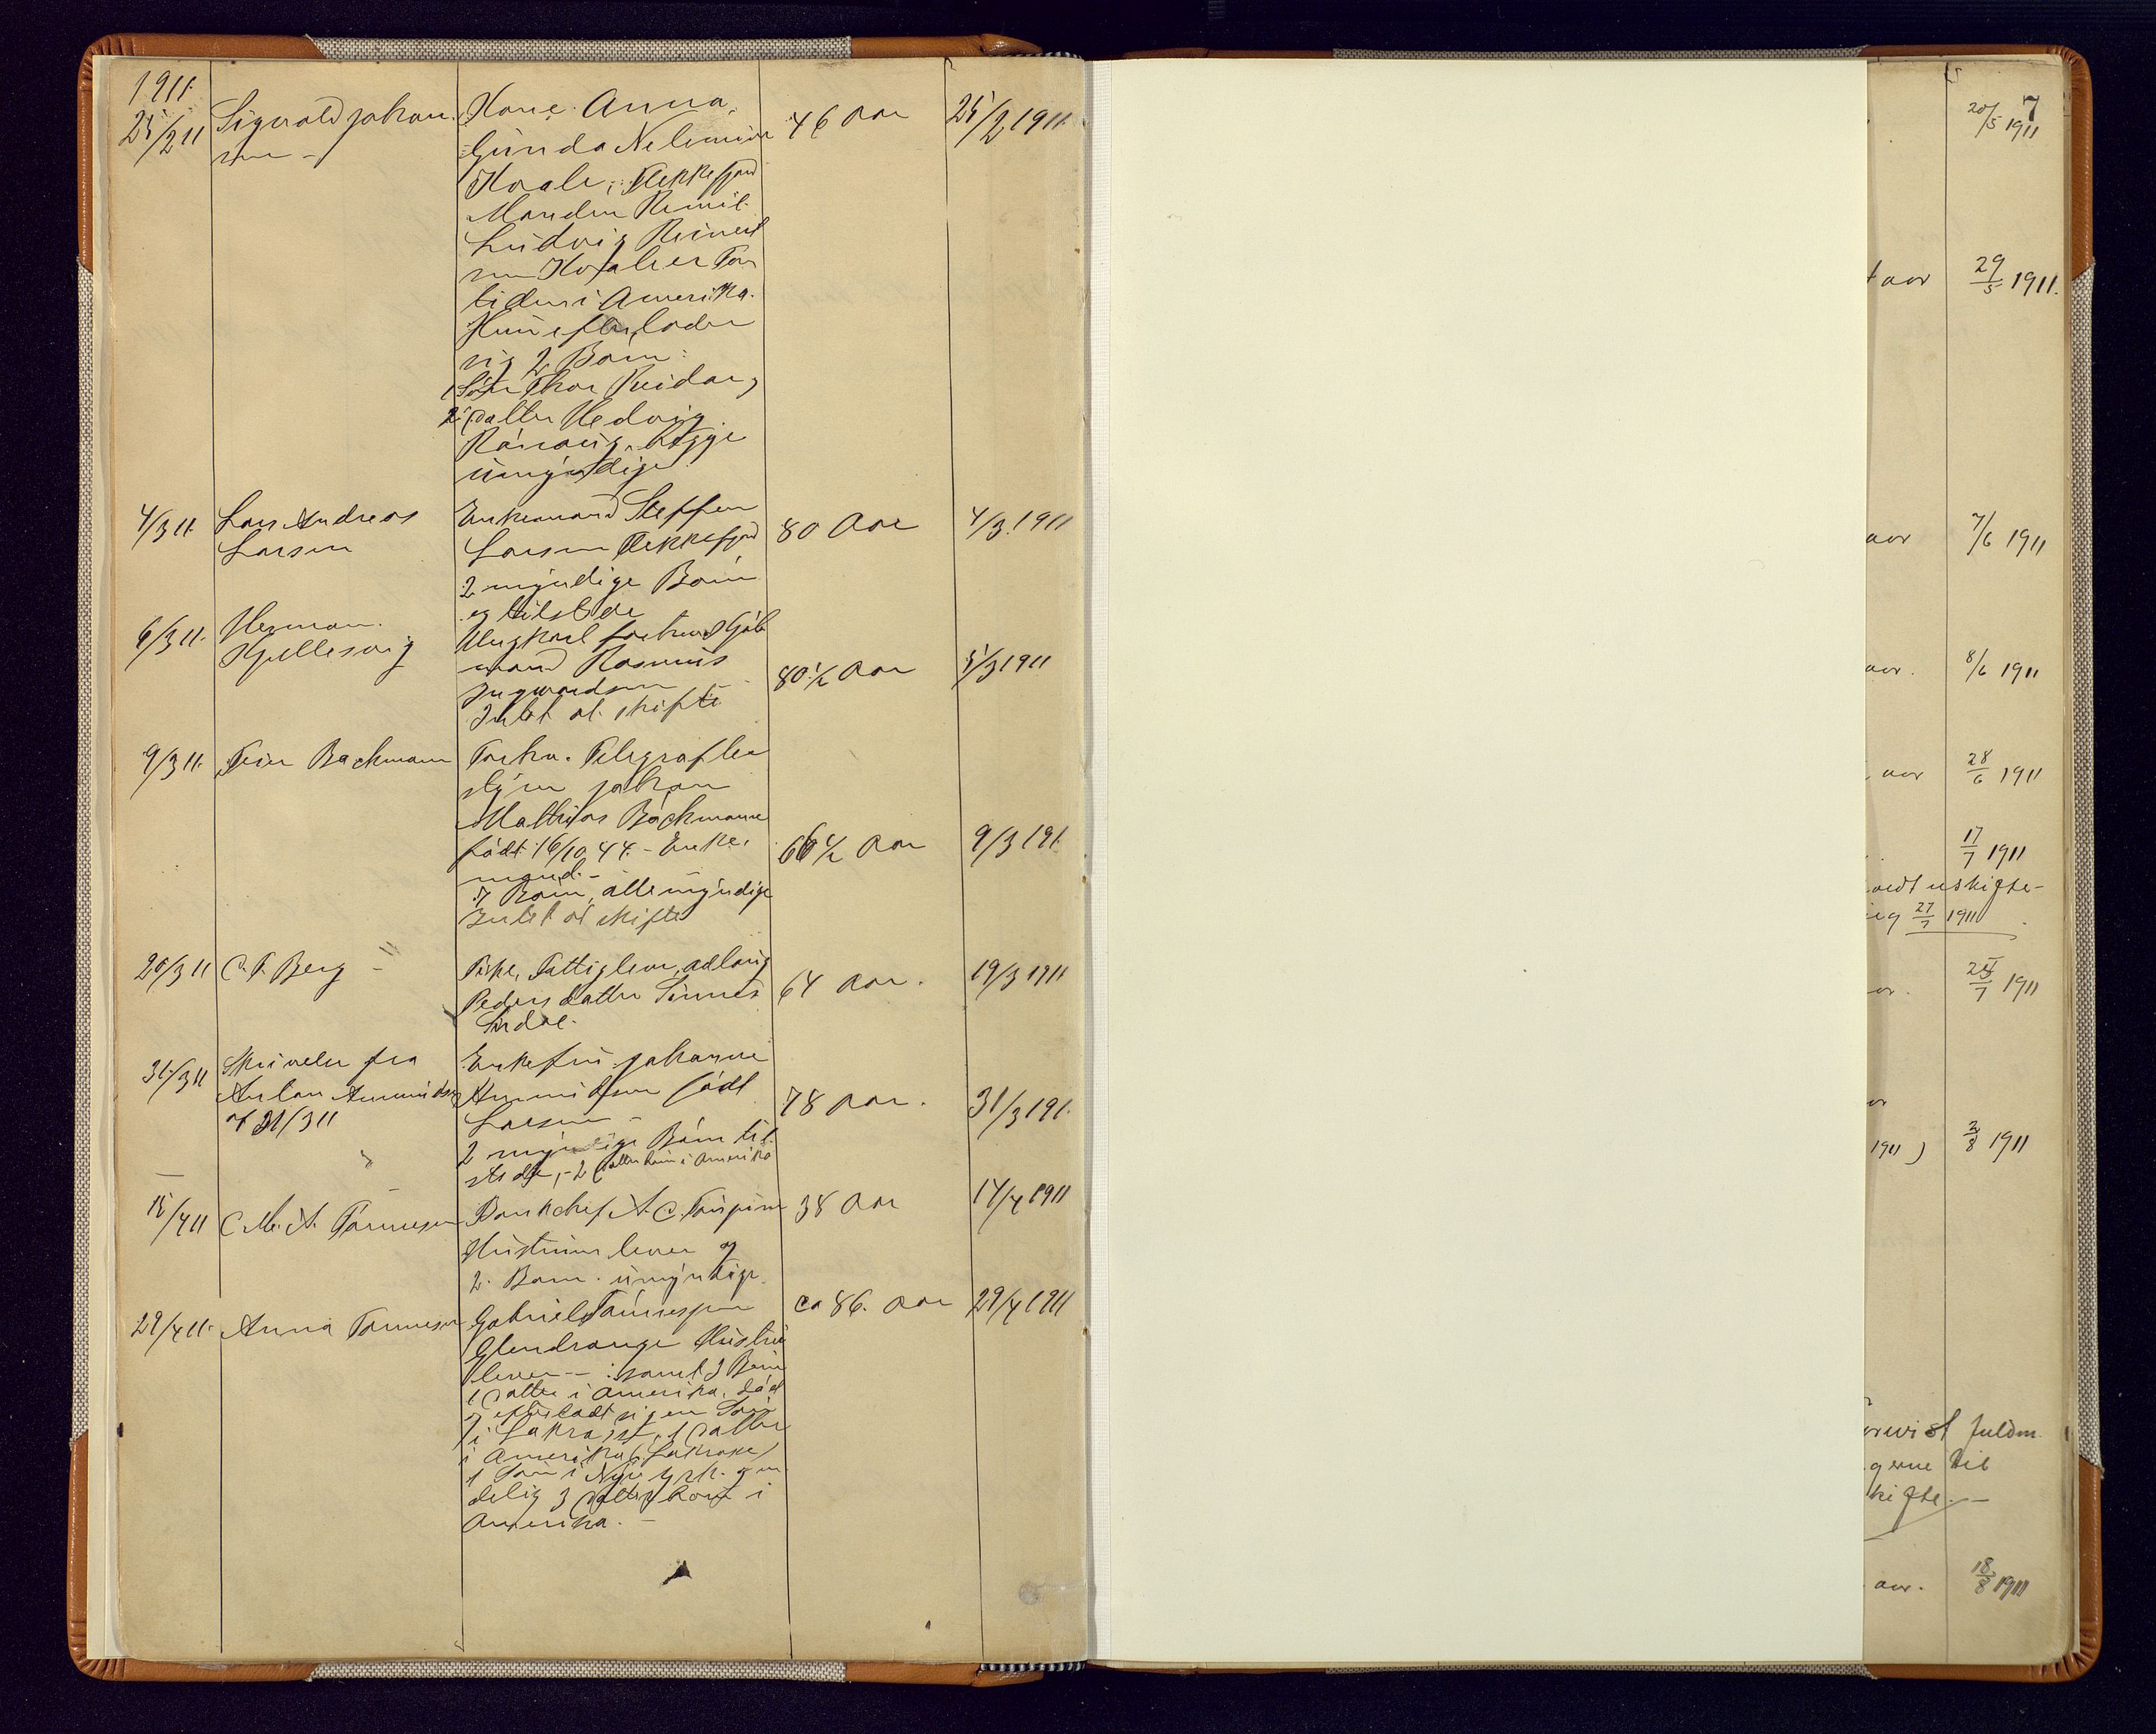 1911
25/2 11
Sigvald Johan-
sen -
Kone Anna
Gunda Nelemine
Hvale, Flekkefjord
Manden Remit.
Ludvig Reinert
sen Hvale er For
tiden i Amerika.
Hun efterlader
sig 2 Børn:
1 Søn Thor Reidar,
2 Datter Hedvig
Rånaug, begge
umyndige
46 Aar
25/2 1911
4/3 11
Lars Andreas
Larsen
Enkemand Steffen
Larsen Flekkefjord
2 myndige Børn
og tilstede
80 Aar
4/3 1911
6/3 11
Herman
Kjellesvig
Ungkarl forhend
mand Rasmus
Ingwardsen
Intet at skifte
80 1/2 Aar
5/3 1911
9/3 11
Peder Bachmann
Forhv. Telegrafbe
styrer Johan
Mathias Bachmann
født 16/10 44 - Enke
mand. -
7 Børn, alle myndige
Intet at skifte
66 1/2 Aar
9/3 191
20/3 11
C. F. Berg
Pike, Fattiglem, Adlaug
Pedersdatter Sinnes
Sirdal.
64 Aar.
19/3 1911
31/3 11
Skrivelse fra
Anton Amundsen
af 31/3 11
Enkefru Johanne
Amundsen født
Larsen -
2 myndige Børn til
stede, - 2 Datterbørn i Amerika
78 Aar.
31/3 191
15/4 11
C. M. A. Tønnesen
Bankchef A. C.
Hustruen lever og
2 Børn umyndige
38 Aar
14/4 1911
29/4 11
Anna Tønnesen
Gabriel Tønnessen
Glendrange Hustru
lever - samt 3 Børn
1 Datter i Amerika, død
og efterladt sig en Søn
i 1 Datter
i Amerika
1 Søn i New York og en
delig 3 Datterbørn i
Amerika. -
ca 86 Aar
29/4 1911
7
20/5 1911
aar
29/5 1911.
aar
7/6 1911
aar.
8/6 1911
aar
28/6 1911
17/7 1911
uskifte-
27/7 1911
25/7 1911
1911)
2/8 1911
fuldm.
gerne til
kifte. -
aar.
18/8 1911